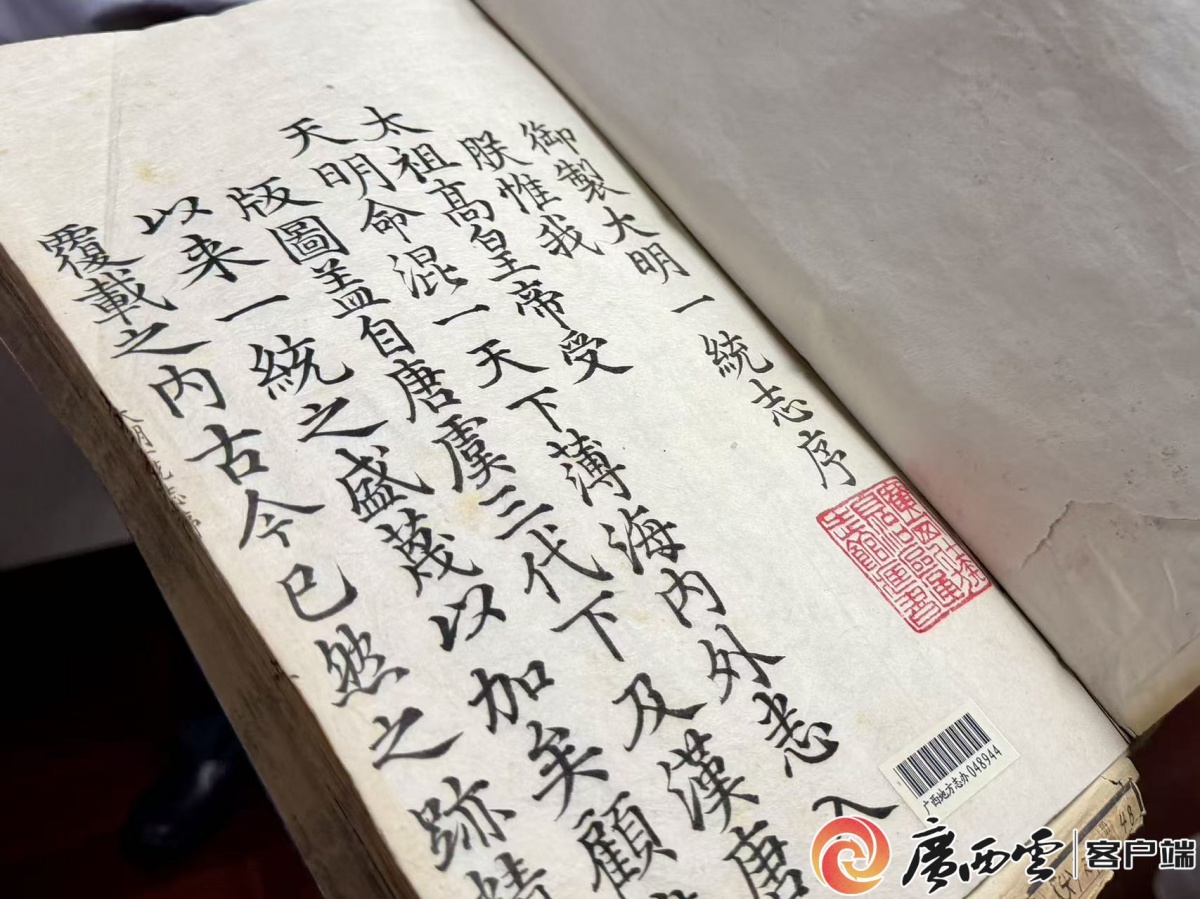 御製大明一統志序
朕惟我
太祖高皇帝受
天明命混一天下薄海内外悉入
版圖盖自唐虞三代下及漢唐
以来一統之盛蔑以加矣顧
覆載之内古今已然之跡
广西地方志办 048944
48
廣西雲 客户端